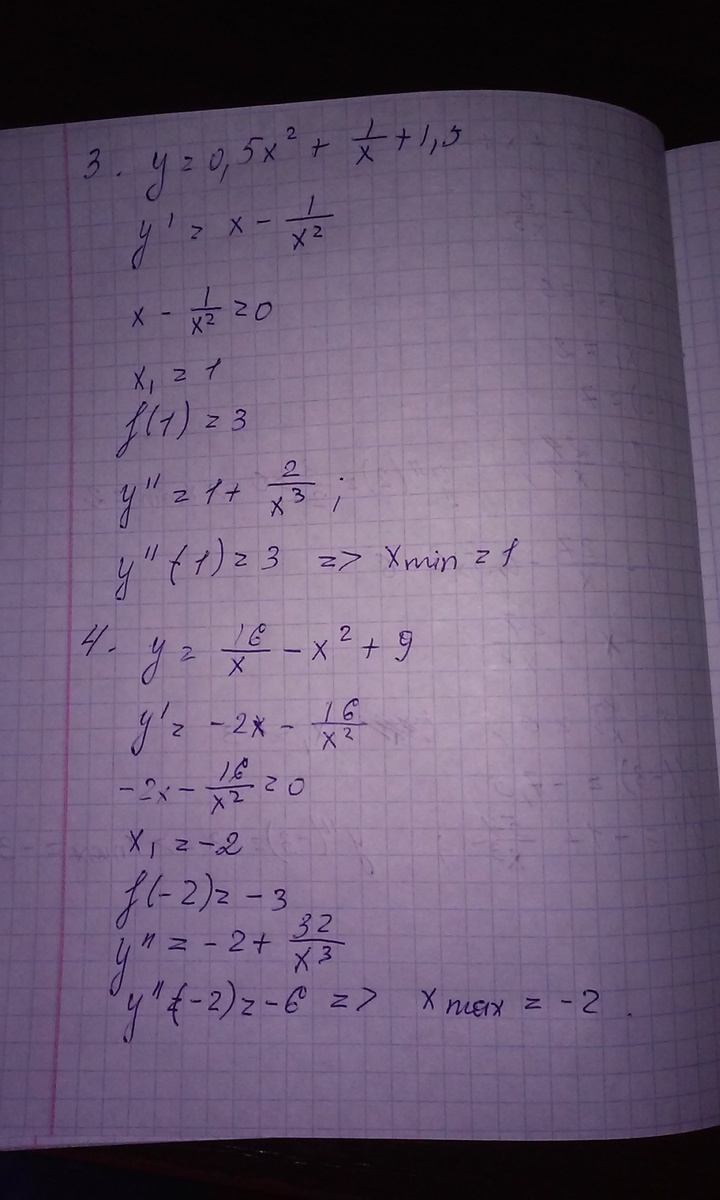 3. y = 0,5x² + 1/x + 1,5
y' = x - 1/x²
x - 1/x² = 0
x₁ = 1
f(1) = 3
y'' = 1 + 2/x³ ;
y''(1) = 3 => xmin = 1
4. y = 16/x - x² + 9
y' = -2x - 16/x²
-2x - 16/x² = 0
x₁ = -2
f(-2) = -3
y'' = -2 + 32/x³
y''(-2) = -6 => xmax = -2 .